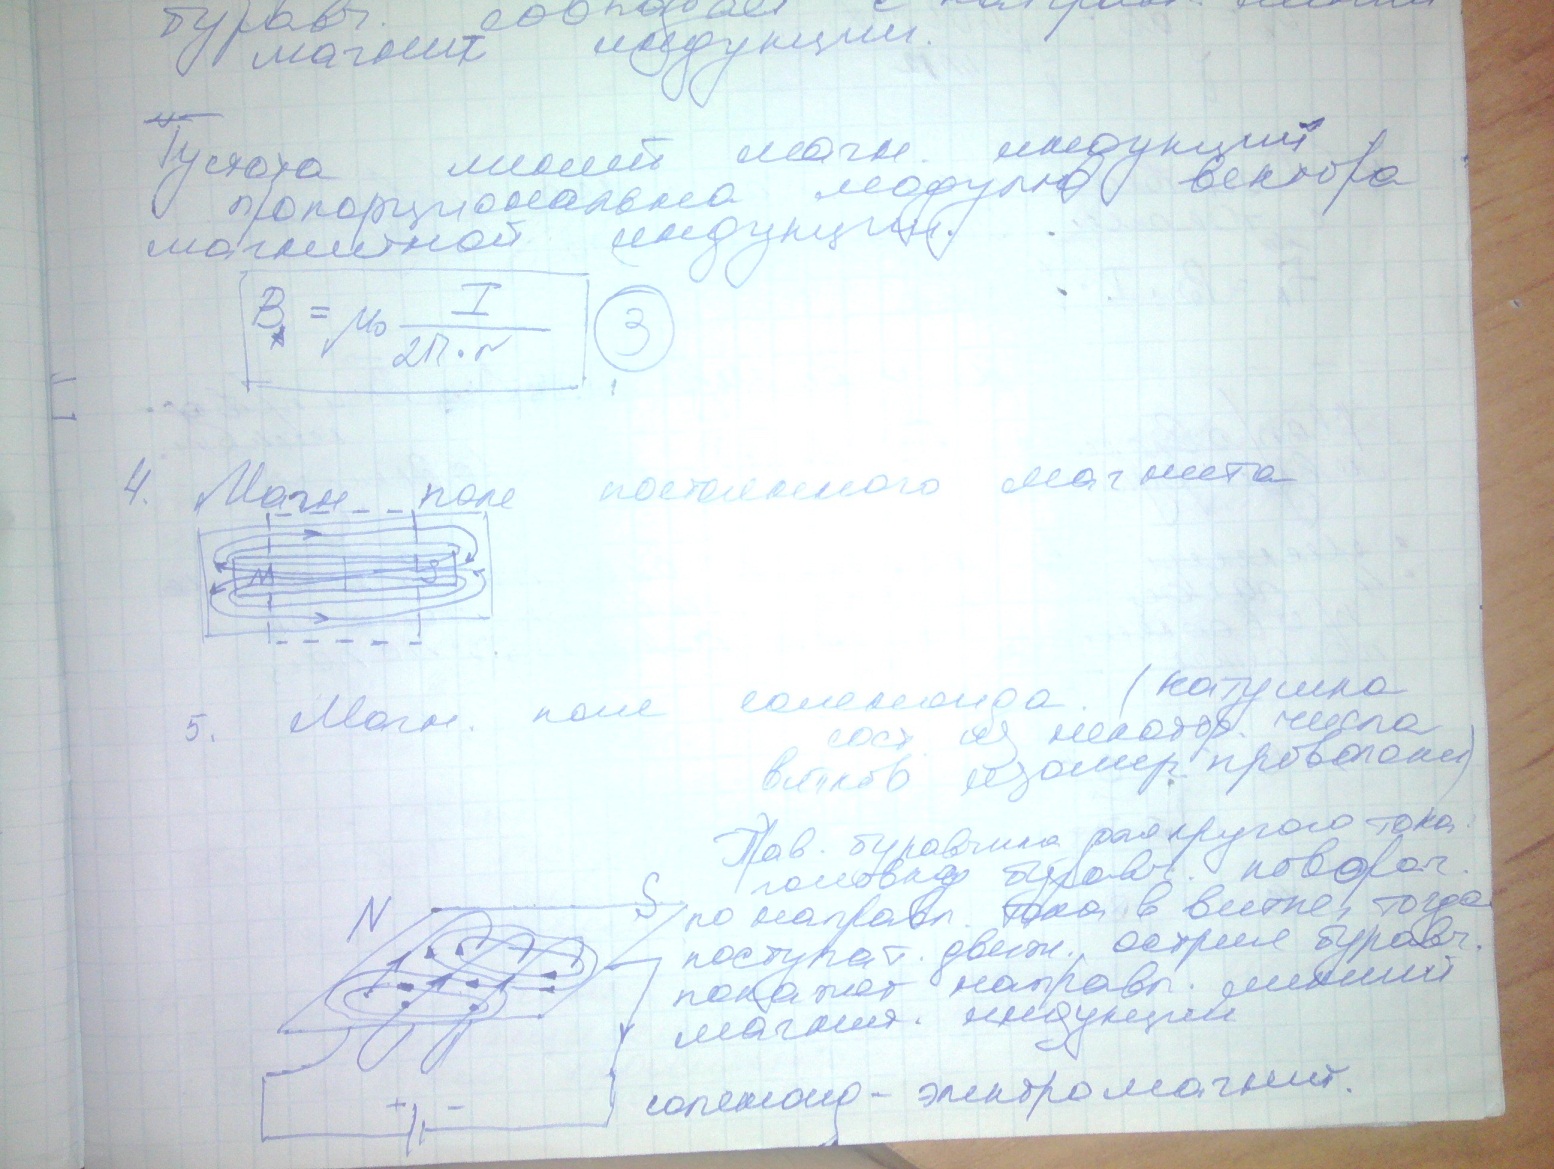 буравч. совпадает с направл. линий
магнит индукции.
Густота линий магн. индукций
пропорциональна модулю вектора
магнитной индукции.
B = μ₀ I / 2π·r
3
4. Магн поле постоянного магнита
N S
5. Магн. поле соленоида. (катушка
сост. из некотор. числа
витков изолир. проволоки)
Прав. буравчика для кругого тока.
головка буравч. поворач.
N S
по направл. тока в витке, тогда
поступат. движ. острия буравч.
покажет направл. линий
магнит. индукции
соленоид - электромагнит.
+ -